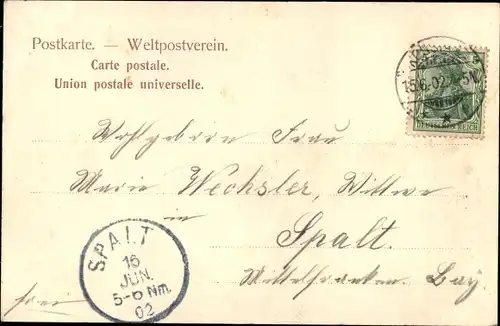 Postkarte. — Weltpostverein.
Carte postale.
Union postale universelle.
15.6.02. 5-N
DEUTSCHES REICH
Wohlgeboren Frau
Marie Wechsler, Wittwe
in
Spalt.
Mittelfranken. Bay.
frei
SPALT
16
JUN.
5-6 Nm.
02